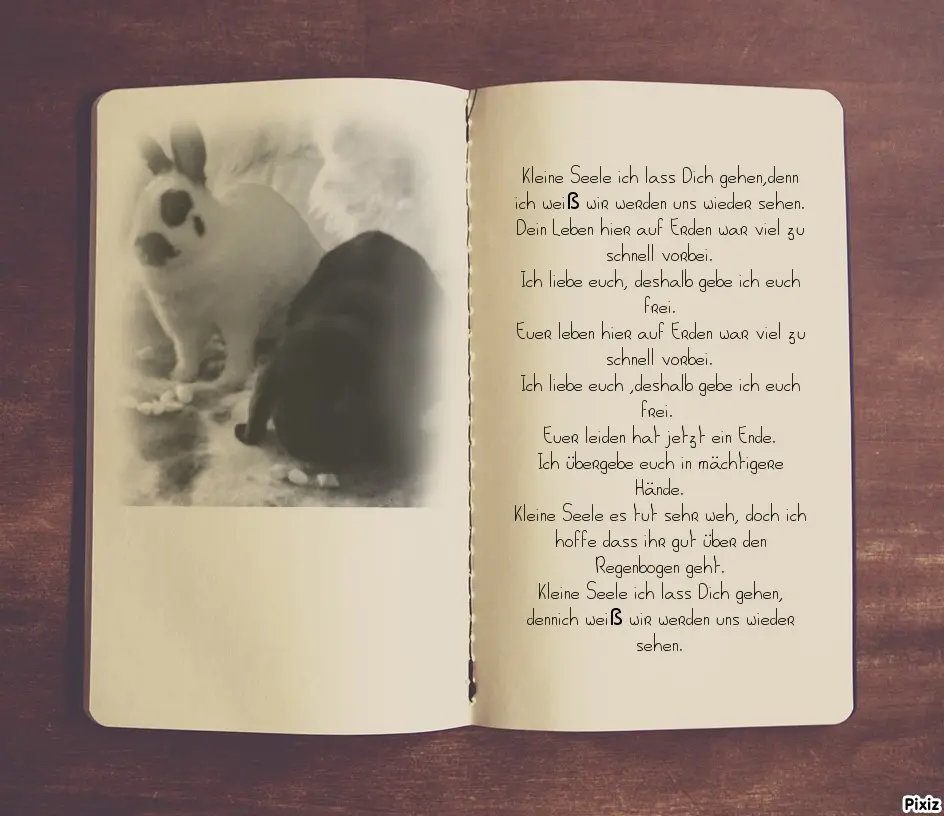 Kleine Seele ich lass Dich gehen,denn
ich weiß wir werden uns wieder sehen.
Dein Leben hier auf Erden war viel zu
schnell vorbei.
Ich liebe euch, deshalb gebe ich euch
frei.
Euer leben hier auf Erden war viel zu
schnell vorbei.
Ich liebe euch ,deshalb gebe ich euch
frei.
Euer leiden hat jetzt ein Ende.
Ich übergebe euch in mächtigere
Hände.
Kleine Seele es tut sehr weh, doch ich
hoffe dass ihr gut über den
Regenbogen geht.
Kleine Seele ich lass Dich gehen,
dennich weiß wir werden uns wieder
sehen.
Pixiz